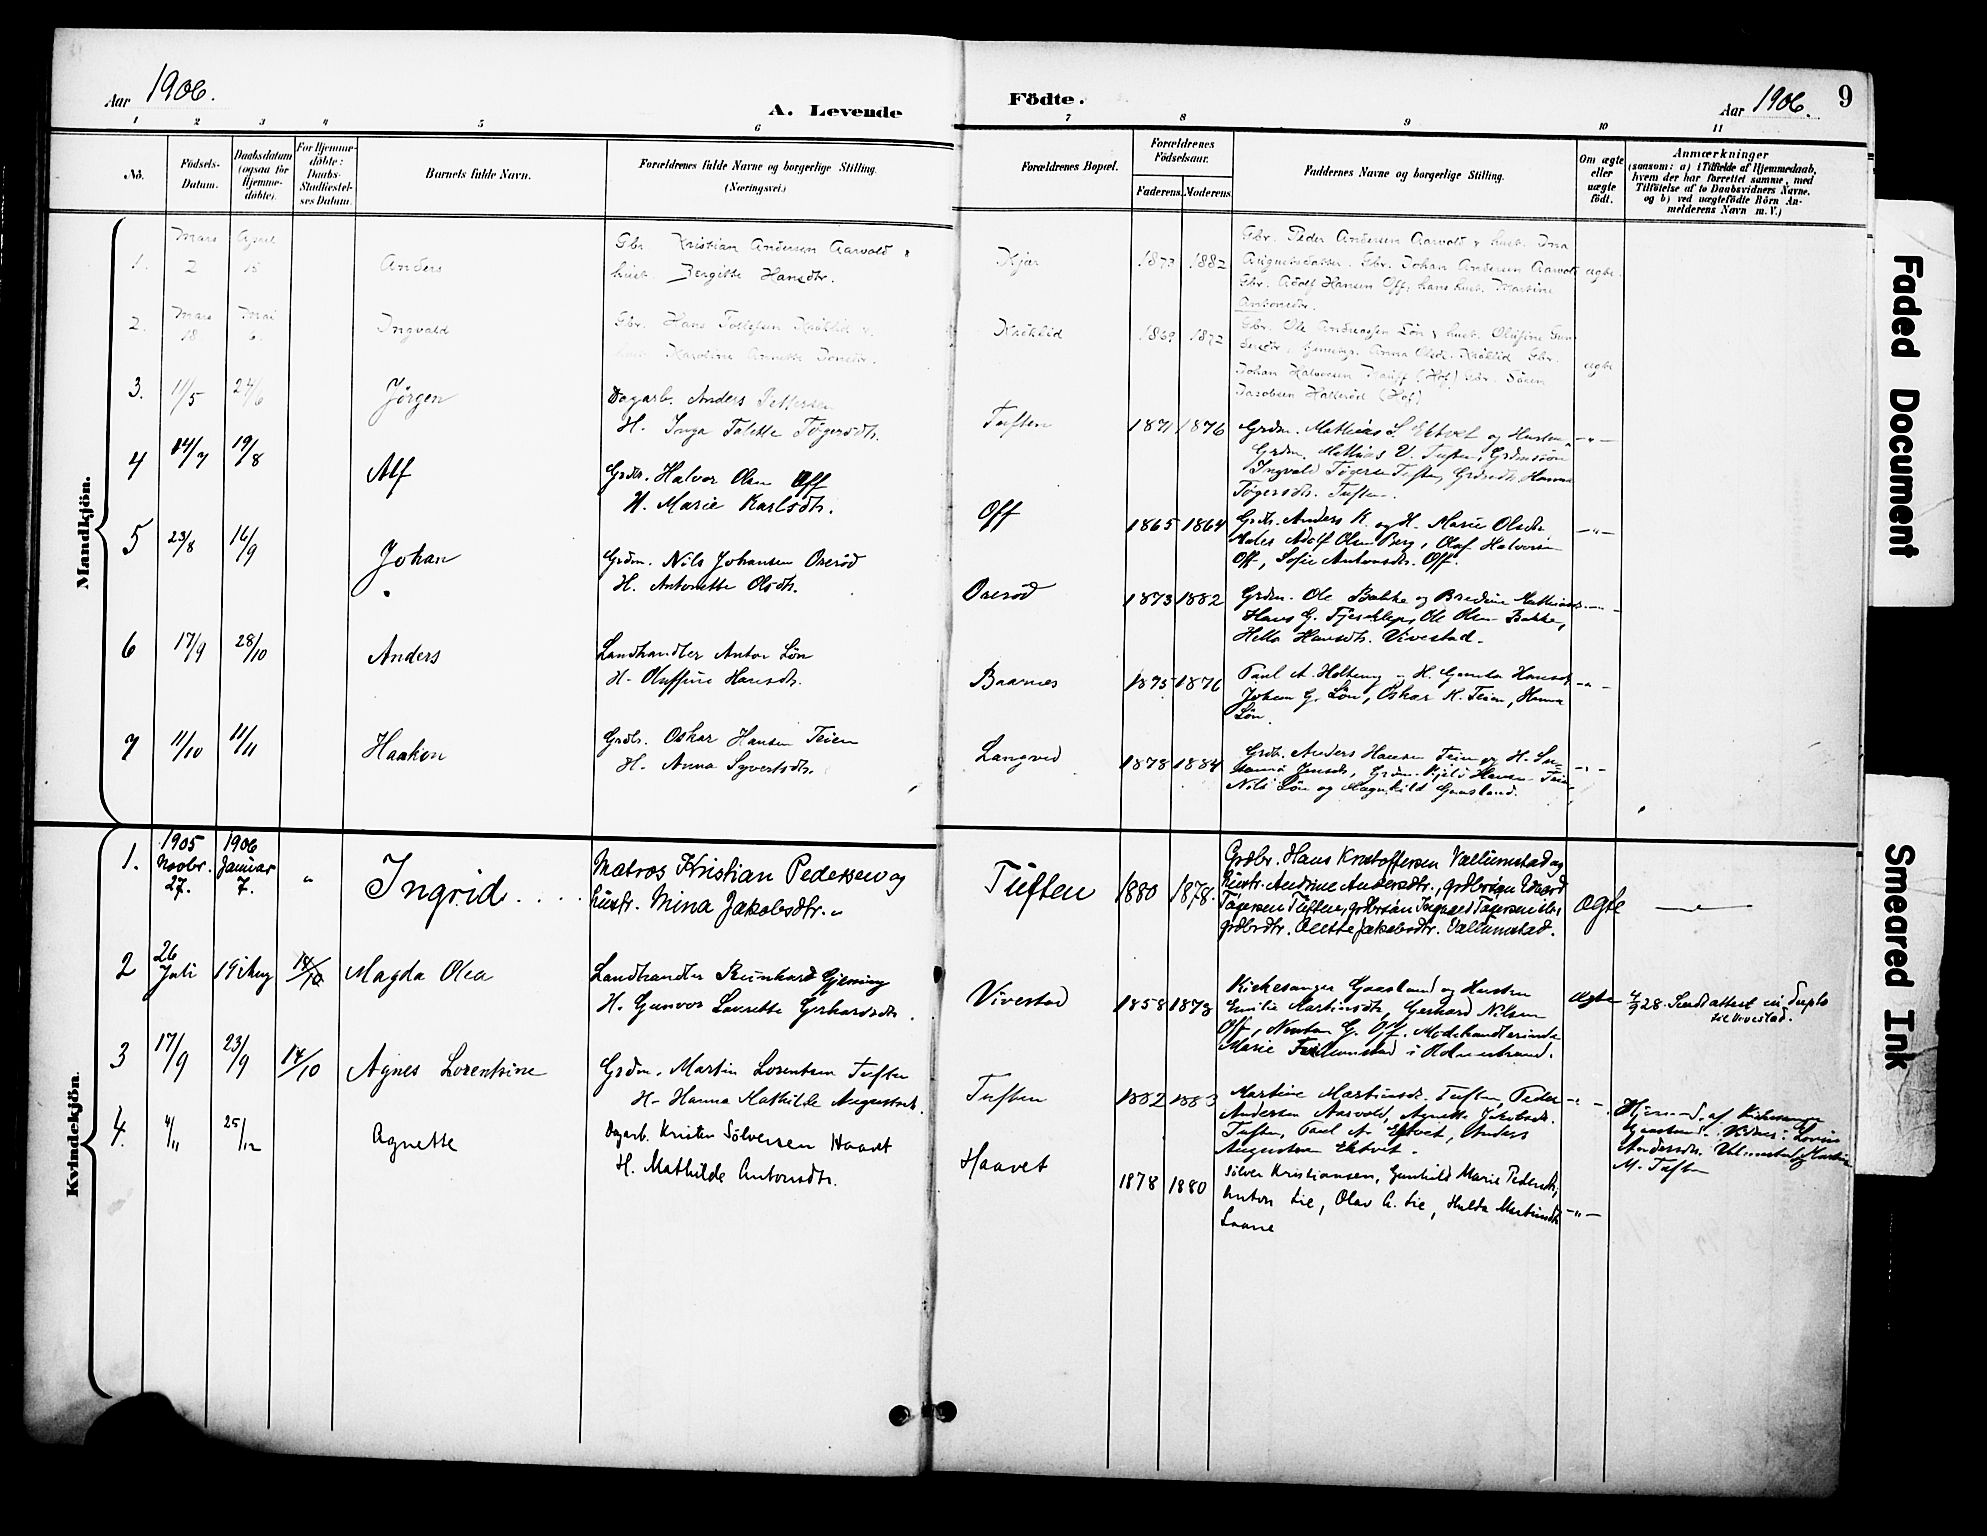 Aar 1906.
A. Levende
Födte.
Aar 1906.
9
1 2 3 4 5 6 7 8 9 10 11
No.
Födsels-
Datum.
Daabsdatum
(ogsaa for
Hjemme-
döbte).
For Hjemme-
döbte:
Daabs-
Stadfæstel-
ses Datum.
Barnets fulde Navn.
Forældrenes fulde Navne og borgerlige Stilling.
(Næringsvei.)
Forældrenes Bopæl.
Forældrenes
Födselsaar.
Faderens. Moderens.
Faddernes Navne og borgerlige Stilling.
Om ægte
eller
uægte
födt.
Anmærkninger
(saasom: a) i Tilfælde af Hjemmedaab,
hvem der har forrettet samme, med
Tilföielse af to Daabsvidners Navne.
og b) ved uægtefödte Börn An-
melderens Navn m. V.)
Mandkjön.
1. Mars 2 April 15 Anders
Gbr. Kristian Andersen Aarvold &
hust. Bergitte Hansdtr.
Kjær 1873 1882
Gbr. Peder Andersen Aarvold & hust. Ina
Augustsdatter. Gbr. Johan Andersen Aarvold
Gbr. Adolf Hansen Off, hans hust. Martine
Antonsdtr.
ægte.
2. Mars 18 Mai 6. Ingvald
Gbr. Hans
hust. Karoline Annette
1869 1872
Gbr. Ole Andreassen Lön & hust. Olufine
Anna Olsd. Gbr.
Johan Halvorsen (Hof) Gbr. Sören
Jacobsen (Hof)
ægte
3. 11/5 24/6 Jørgen
Dagarb. Anders Pettersen
H. Inga Talette Tøgersdtr.
Tuften 1871 1876
Grdm. Mathias S. Ektvet og Hustru
Grdm. Mathias V. Tuften, Grdmssön
Ingvald Tøgersen Tuften, Grdmdtr. Hanna
Tøgersdtr. Tuften.
4 14/7 19/8 Alf
Grdbr. Halvor Olsen Off
H. Marie Karlsdtr.
Off 1865 1864
Grdbr. Anders K. og H. Marie Olsdtr.
Adolf Olsen Berg, Olaf Halvorsen
Off, Sofie Antonsdtr. Off.
5 23/8 16/9 Johan
Grdm. Nils Johansen Oserød
H. Antonette Olsdtr.
Oserød 1873 1882
Grdm. Ole Bakke og Bredine Mathiasdtr.
Hans G. Ole Olsen Bakke,
Hella Hansdtr. Vivestad.
6 17/9 28/10 Anders
Landhandler Anton Løn
H. Oluffine Hansdtr.
Baarnes 1875 1876
Paul A. Holtung og H. Gunda Hansdtr.
Johan G. Løn, Oskar H. Teien, Hanna
Løn.
7 11/10 11/11 Haakon
Grdbr. Oskar Hansen Teien
H. Anna Syvertsdtr.
Langved 1878 1884
Grdbr. Anders Hansen Teien og H. Su-
sanna Jensdtr, Grdm. Kjeld Hansen Teien,
Nils Løn og Magnhild Gaasland.
Kvindekjön.
1. 1905 Novbr. 27. 1906 Januar 7. " Ingrid....
Matros Kristian Pedersen og
hustr. Mina Jakobsdtr.
Tuften 1880 1878.
Grdbr. Hans Kristoffersen Vællumstad og
hustr. Andrine Andersdtr., grdbrsøn Edvard
Tøgersen Tuften, grdbrsøn Ingvald Tøgersen ibr,
grdbrdtr. Olette Jakobsdtr. Vællumstad.
ægte
2 26 Juli 19 Aug 14/10 Magda Olea
Landhandler Reinhard Gjerning
H. Gunvor Laurette Gerhardsdtr.
Vivestad 1858 1873
Kirkesanger Gaasland og Hustru
Emilie Martinsdtr, Gerhard Nilsen
Off, Newton G. Off. Modehandlerinde
Marie i Holmestrand.
ægte
4/9 28. Sendt attest in duplo
til Vivestad.
3 17/9 23/9 14/10 Agnes Lorentsine
Grdm. Martin Lorentsen Tuften
H. Hanna Mathilde Augustsdtr.
Tuften 1882 1883
Martine Martinsdtr. Tuften, Peder
Andersen Aarvold, Agnette Jakobsdtr.
Tuften, Paul A. Ektvet, Anders
Augustsen Ektvet.
Hjemmed. af Kirkesanger
Gaasland. Vidner: Lovise
Andersdtr. Vælumstad og Martin
M. Tuften
4. 4/11 25/12 Agnette
Dagarb. Kristen Sölversen Haavet
H. Mathilde Antonsdtr.
Haavet 1878 1880
Sölver Kristiansen, Gunhild Marie Pedersdtr,
Anton Lie, Olav A. Lie, Hulda Martinsdtr.
Laane
Faded Document
Smeared Ink